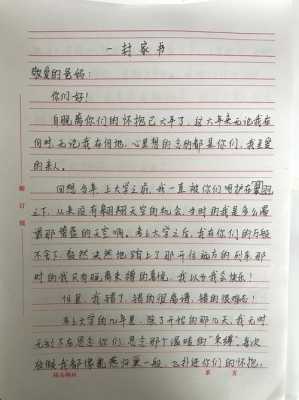 一封家书
敬爱的爸妈:
你们好!
自脱离你们的怀抱已六年了,这六年来无论我在
何时,无论我在何地,心里想的念的都是你们,我至爱
的亲人。
回想当年上大学之前,我一直被你们呵护在羽翼
之下,从来没有翱翔天空的机会,当时的我是多么憧
着那蓝蓝的天空啊。考上大学之后,我在你们的万般
不舍下,毅然决然地踏上了那开往远方的列车,那
时的我只有脱离束缚的喜悦,我以为我会快乐!
但是,我错了,错的很离谱,错的很难过!
考上大学的几年里,除了开始的那几天,我无时
无刻不在思念你们,思念那个温暖的"束缚",每次
放假我都像乳燕归巢一般,飞扑进你们的怀抱,
装订线
第 页